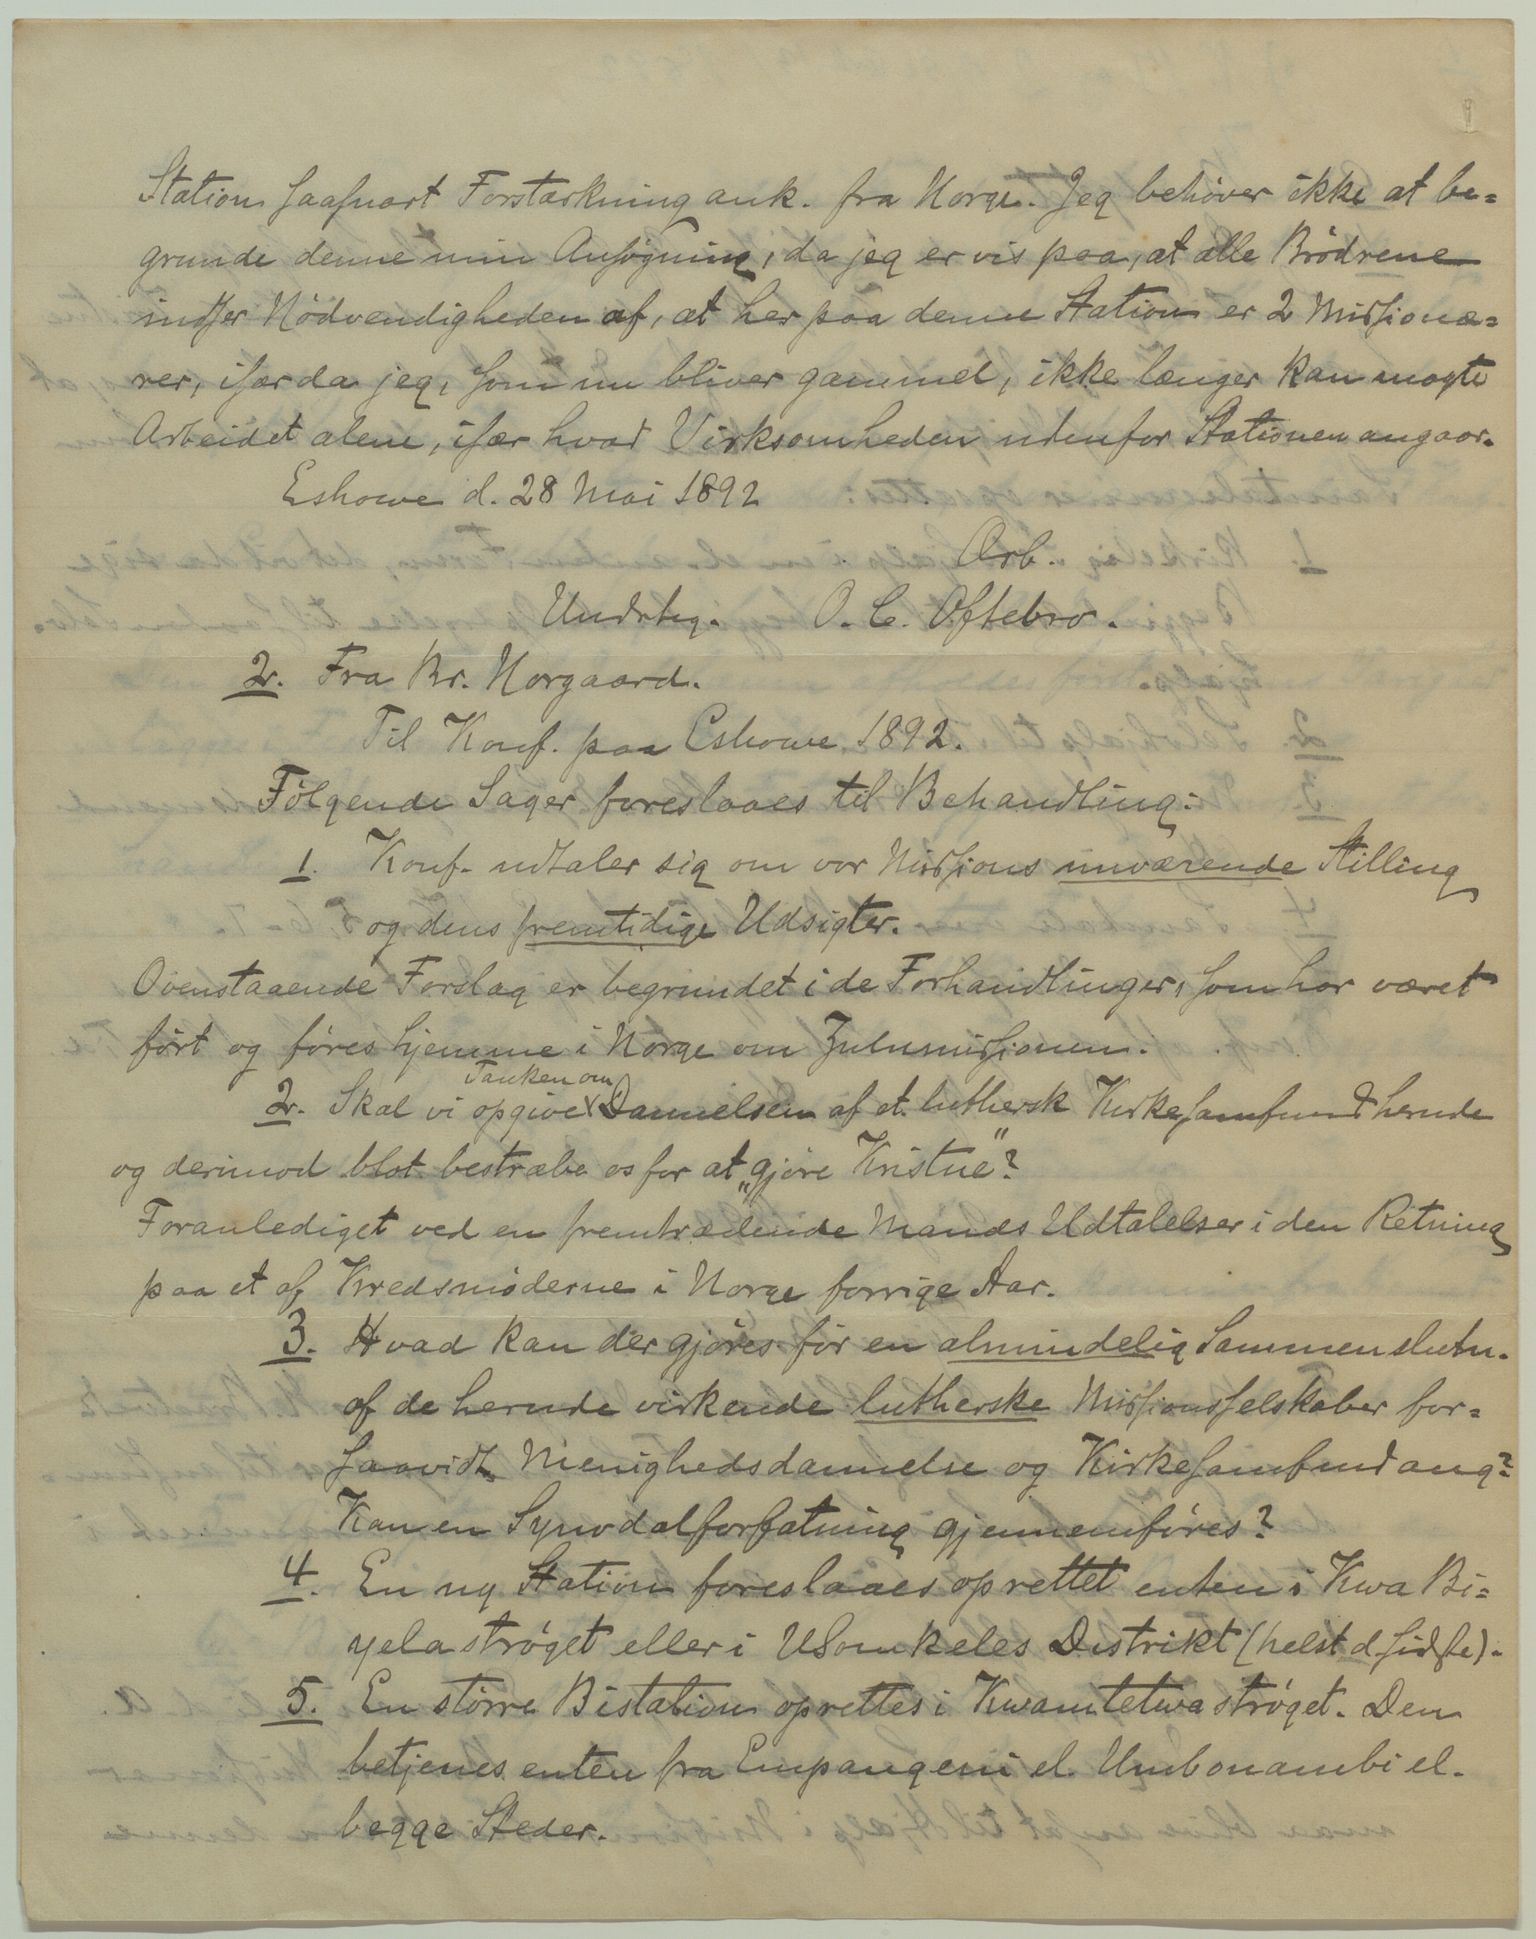 Station saasnart Forstærkning ank. fra Norge. Jeg behøver ikke at be=
grunde denne min Ansøgning, da jeg er vis paa, at alle Brødrene
indser Nødvendigheden af, at her paa denne Station er 2 Missionæ=
rer, især da jeg, som nu bliver gammel, ikke længer kan magte
Arbeidet alene, især hvad Virksomheden udenfor Stationen angaar.
Eshowe d. 28 Mai 1892
Ærb.
Underteg. O. C. Oftebro.
2. Fra Br. Norgaard.
Til Konf. paa Eshowe 1892.
Følgende Sager foreslaaes til Behandling:
1. Konf. udtaler sig om vor Missions nuværende Stilling
og dens fremtidige Udsigter.
Ovenstaaende Forslag er begrundet i de Forhandlinger, som har været
ført og føres hjemme i Norge om Zulumissionen.
Tanken om
2. Skal vi opgive Dannelsen af et luthersk Kirkesamfund hernde
og derimod blot bestræbe os for at „gjøre Kristne"?
Foranlediget ved en fremtrædende Mands Udtalelser i den Retning
paa et af Kredsmøderne i Norge forrige Aar.
3. Hvad kan der gjøres for en almindelig Sammenslutn.
af de hernde virkende lutherske Missionsselskaber for=
saavidt Menighedsdannelse og Kirkesamfund ang?
Kan en Synodalforfatning gjennemføres?
4. En ny Station foreslaaes oprettet enten i Kwa Bi=
yela strøget eller i USomkeles Distrikt (helst d. sidste).
5. En større Bistation oprettes i Kwamtetwa strøget. Den
betjenes enten fra Empangeni el. Umbonambi el.
begge Steder.